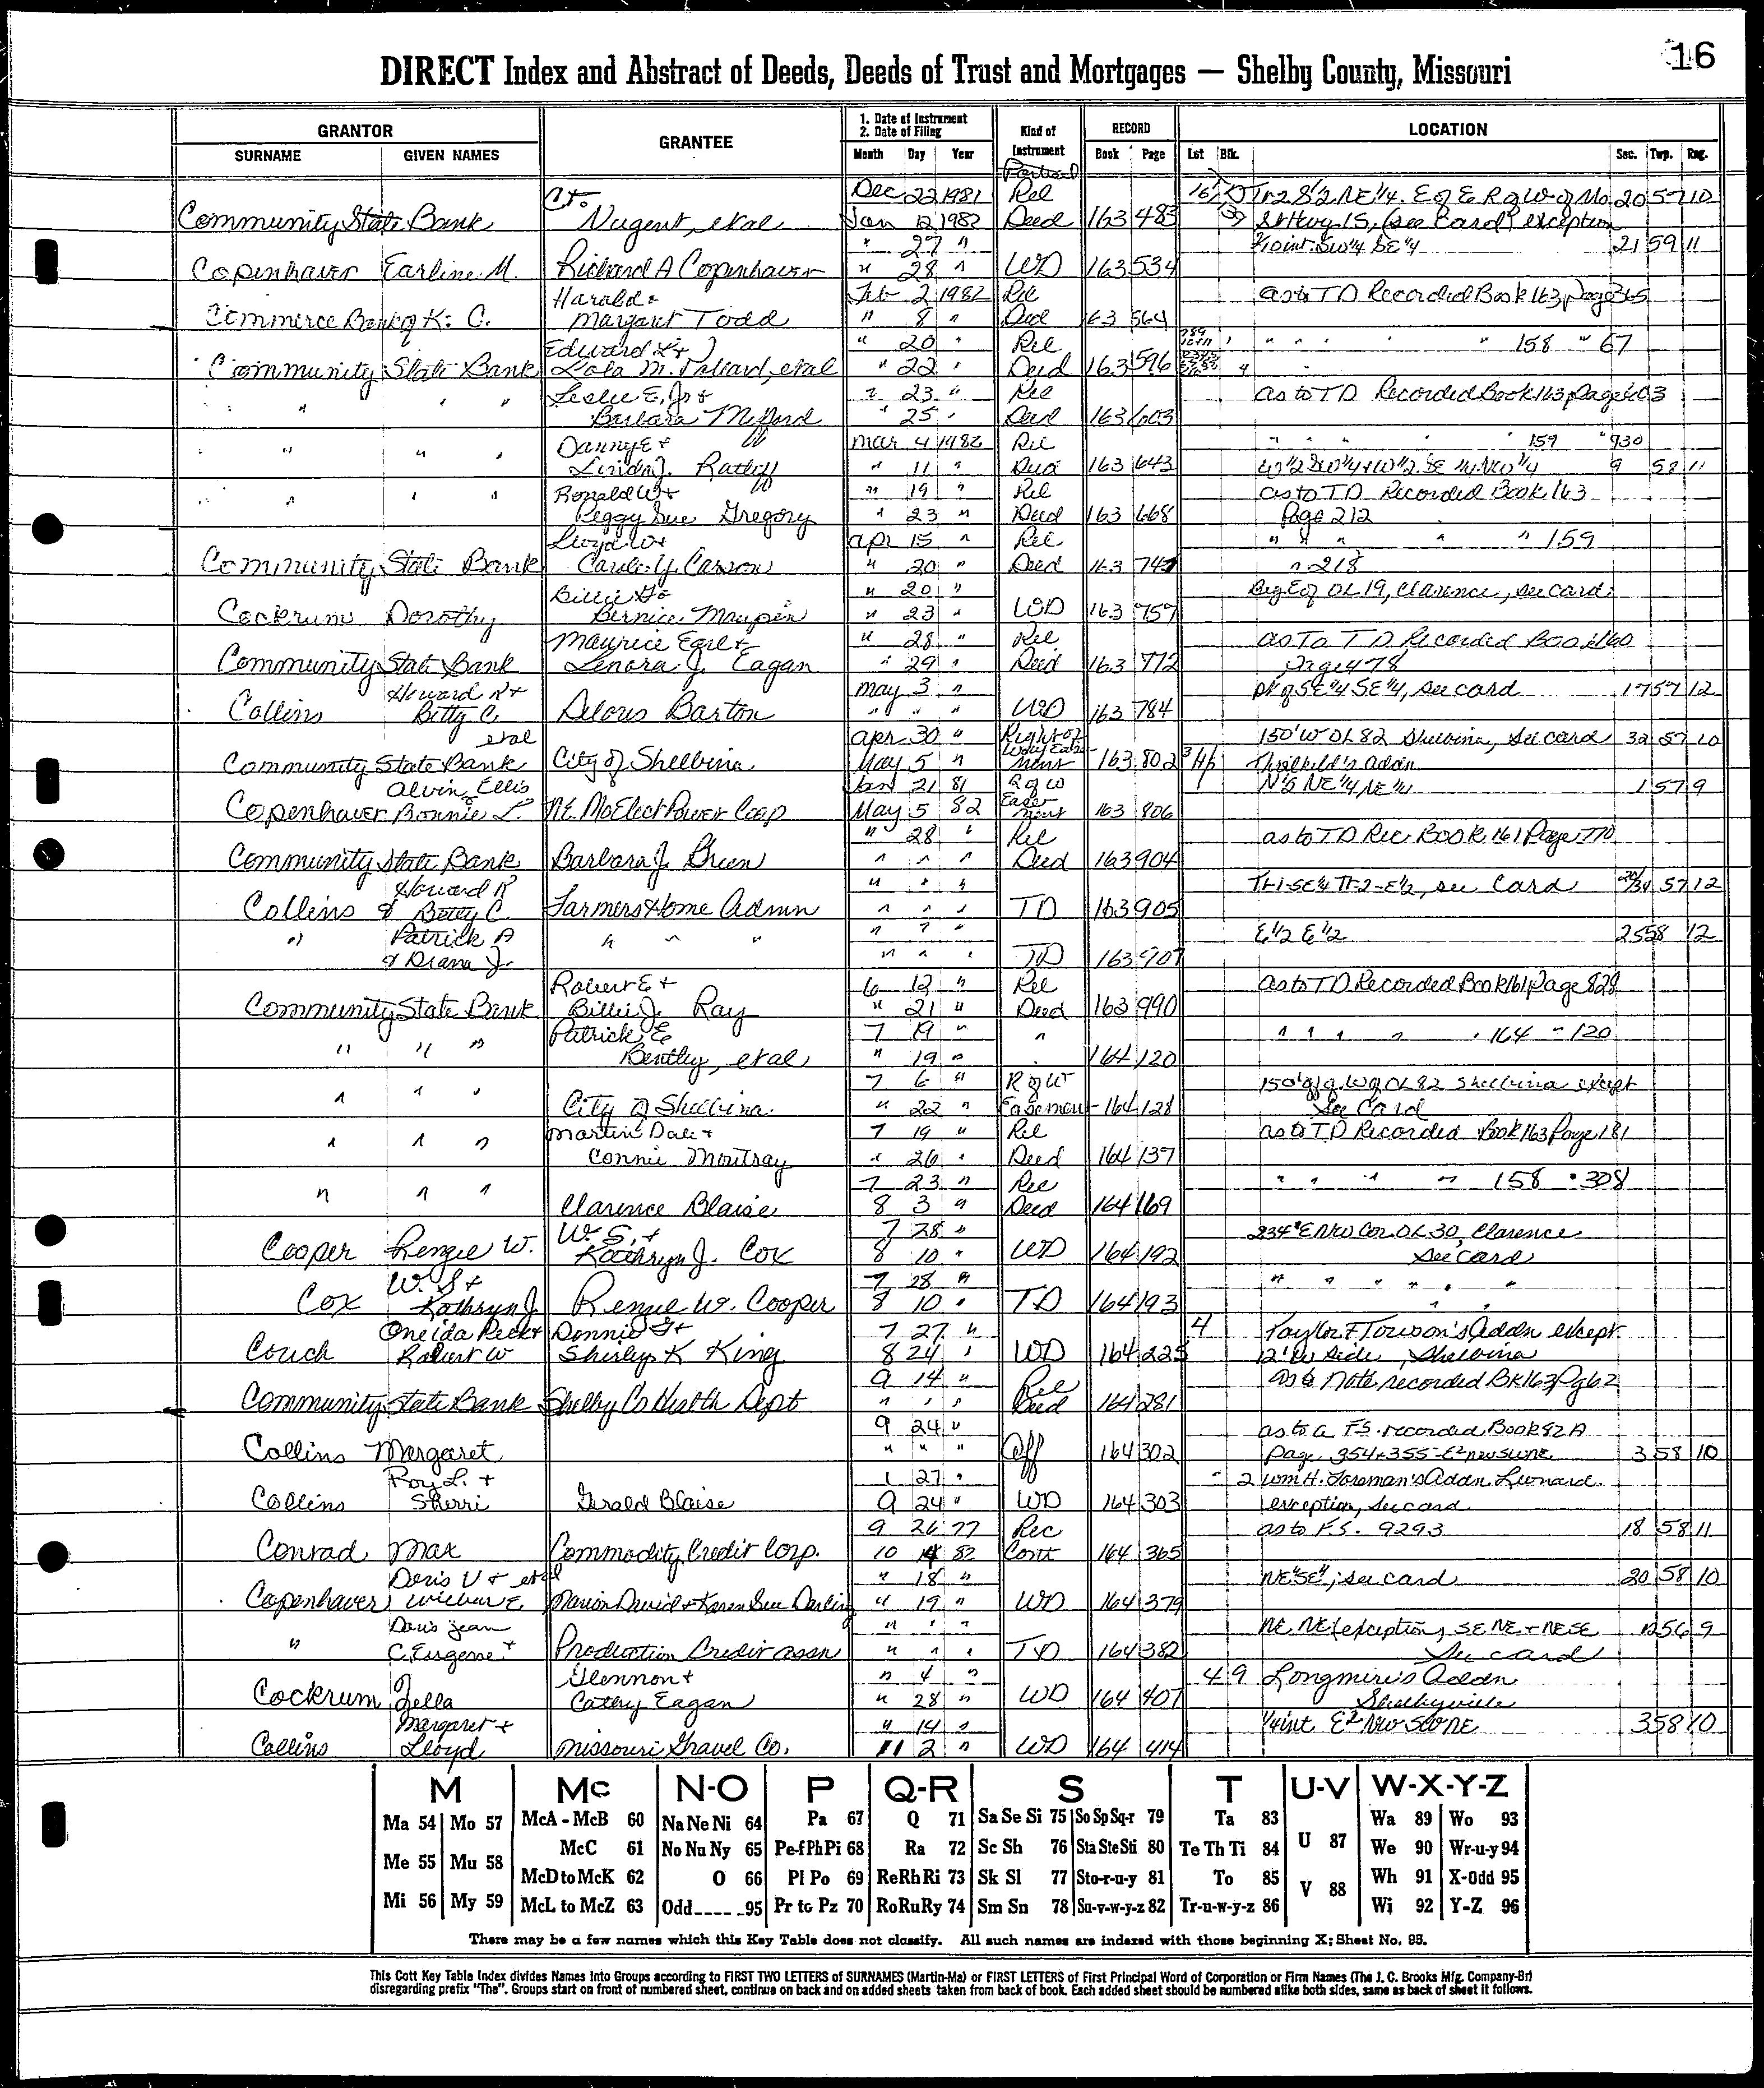 16
DIRECT Index and Abstract of Deeds, Deeds of Trust and Mortgages — Shelby County, Missouri
GRANTOR GRANTEE 1. Date of Instrument 2. Date of Filing Kind of Instrument RECORD LOCATION
SURNAME GIVEN NAMES Month Day Year Book Page Lot Blk. Sec. Twp. Rng.
Partial
Dec 22 1981 Rel Tr 2 S 1/2 NE 1/4 E of E R of W of Mo 20 57 10
Community State Bank Nugent, etal Jan 12 1982 Deed 163 483 St Hwy 15, (see Card) exception
" 27 " int. SW 1/4 SE 1/4 21 59 11
Copenhaver Earline M. Richard A Copenhaver " 28 " WD 163 534
Harold + Feb 2 1982 Rel as to TD Recorded Book 163, page 365
Commerce Bank of K. C. Margaret Todd " 8 " Deed 63 564
Edward L + " 20 " Rel " " " " " 158 " 67
Community State Bank Lola M. etal " 22 " Deed 163 596 4
Leslie E. Jr + " 23 " Rel as to TD Recorded Book 163, page 603
" " " " Barbara Mefford " 25 " Deed 163 603
Danny E + Mar 4 1982 Rel " " " " 159 " 930
" " " " Linda J. Ratliff " 11 " Deed 163 643 W 1/2 SW 1/4 + W 1/2 SE 1/4 NW 1/4 9 58 11
Ronald W + " 19 " Rel as to T.D. Recorded Book 163
" " " " Peggy Sue Gregory " 23 " Deed 163 668 Page 212
Lloyd W + Apr 15 " Rel " " " " " 159
Community State Bank Carson " 20 " Deed 163 747 " 218
Billie G + " 20 " Beg E of OL 19, Clarence, see card
Cockrum Dorothy Bernice Maupin " 23 " WD 163 757
Maurice Earl + " 28 " Rel as to T D Recorded Book 160
Community State Bank Lenora J. Eagan " 29 " Deed 163 772 page 478
Howard R + May 3 " pt of SE 1/4 SE 1/4, see card 17 57 12
Collins Betty C. Deloris Barton " " " WD 163 784
etal Apr 30 " Right of 150' W OL 82 Shelbina, see card 32 57 10
Community State Bank City of Shelbina May 5 " Way Ease-ment 163 802 Threlkeld's Addn
Alvin Ellis Jan 21 81 R of W N 1/2 NE 1/4 NE 1/4 1 57 9
Copenhaver Bonnie L. NE. Mo Elect Power Coop May 5 82 Easement 163 806
" 28 " Rel as to T D Rec Book 161 Page 770
Community State Bank Barbara J. Green " " " Deed 163 904
Howard R " " " Tr 1-SE 1/4 Tr 2-E 1/2, see Card 57 12
Collins & Betty C. Farmers Home Admn " " " TD 163 905
" Patrick A " " " " " " E 1/2 E 1/2 25 58 12
& Diana J. " " " TD 163 907
Robert E + 6 12 " Rel as to TD Recorded Book 161 Page 828
Community State Bank Billie J. Ray " 21 " Deed 163 990
Patrick E 7 19 " " " " " " " 164 " 120
" " " Bentley, etal " 19 " 164 120
7 6 " R of W 150' W of OL 82 Shelbina except
" " " City of Shelbina " 22 " Easement 164 128 See Card
Martin Dale + 7 19 " Rel as to T.D Recorded Book 163 Page 181
" " " Connie Moutray " 26 " Deed 164 137
7 23 " Rel " " " " 158 " 308
" " " Clarence Blaise 8 3 " Deed 164 169
W. S. + 7 28 " 234' E NW Cor. OL 30, Clarence
Cooper Renzie W. Kathryn J. Cox 8 10 " WD 164 192 see card
W. S + 7 28 " " " " " " "
Cox Kathryn J Renzie W. Cooper 8 10 " TD 164 193 " "
Oneida Peck + Donnie G + 7 27 " 4 Taylor & Towson's Addn except
Couch Robert W Shirley K King 8 24 " WD 164 225 12' W side, Shelbina
9 14 " Rel as to Note recorded Bk 163 Pg 62
Community State Bank Shelby Co Health Dept " " " Deed 164 281
9 24 " as to a F.S. recorded Book 82 A
Collins Margaret " " " Aff 164 302 page 354 + 355 - E 2 NW SW NE 3 58 10
Roy L. + 1 27 " 2 Wm H. Foreman's Addn Leonard
Collins Sherri Gerald Blaise 9 24 " WD 164 303 exception, see card
9 26 77 Rec as to F.S. 9293 18 58 11
Conrad Max Commodity Credit Corp. 10 14 82 Cont 164 365
Doris V + etal " 18 " NE 1/4 SE 1/4, see card 20 58 10
Copenhaver Wilbur E. Marion David + Karen Sue Darling " 19 " WD 164 379
Doris Jean " " " NE NE (exception) SE NE + NE SE 12 56 9
" C. Eugene + Production Credit Assn " " " TD 164 382 See card
Glennon + " 4 " 4 9 Longmire's Addn
Cockrum Zella Cathy Eagan " 28 " WD 164 407 Shelbyville
Margaret + " 14 " 1/4 int E 2 NW SW NE 3 58 10
Collins Lloyd Missouri Gravel Co. 11 2 " WD 164 414
M Mc N-O P Q-R S T U-V W-X-Y-Z
Ma 54 Mo 57 McA - McB 60 Na Ne Ni 64 Pa 67 Q 71 Sa Se Si 75 So Sp Sq-r 79 Ta 83 U 87 Wa 89 Wo 93
McC 61 No Nu Ny 65 Pe-f Ph Pi 68 Ra 72 Sc Sh 76 Sta Ste Sti 80 Te Th Ti 84 We 90 Wr-u-y 94
Me 55 Mu 58 McD to McK 62 O 66 Pl Po 69 Re Rh Ri 73 Sk Sl 77 Sto-r-u-y 81 To 85 V 88 Wh 91 X-Odd 95
Mi 56 My 59 McL to McZ 63 Odd 95 Pr to Pz 70 Ro Ru Ry 74 Sm Sn 78 Su-v-w-y-z 82 Tr-u-w-y-z 86 Wi 92 Y-Z 96
There may be a few names which this Key Table does not classify. All such names are indexed with those beginning X; Sheet No. 95.
This Cott Key Table Index divides Names into Groups according to FIRST TWO LETTERS of SURNAMES (Martin-Ma) or FIRST LETTERS of First Principal Word of Corporation or Firm Names (The J. C. Brooks Mfg. Company-Br)
disregarding prefix "The". Groups start on front of numbered sheet, continue on back and on added sheets taken from back of book. Each added sheet should be numbered alike both sides, same as back of sheet it follows.